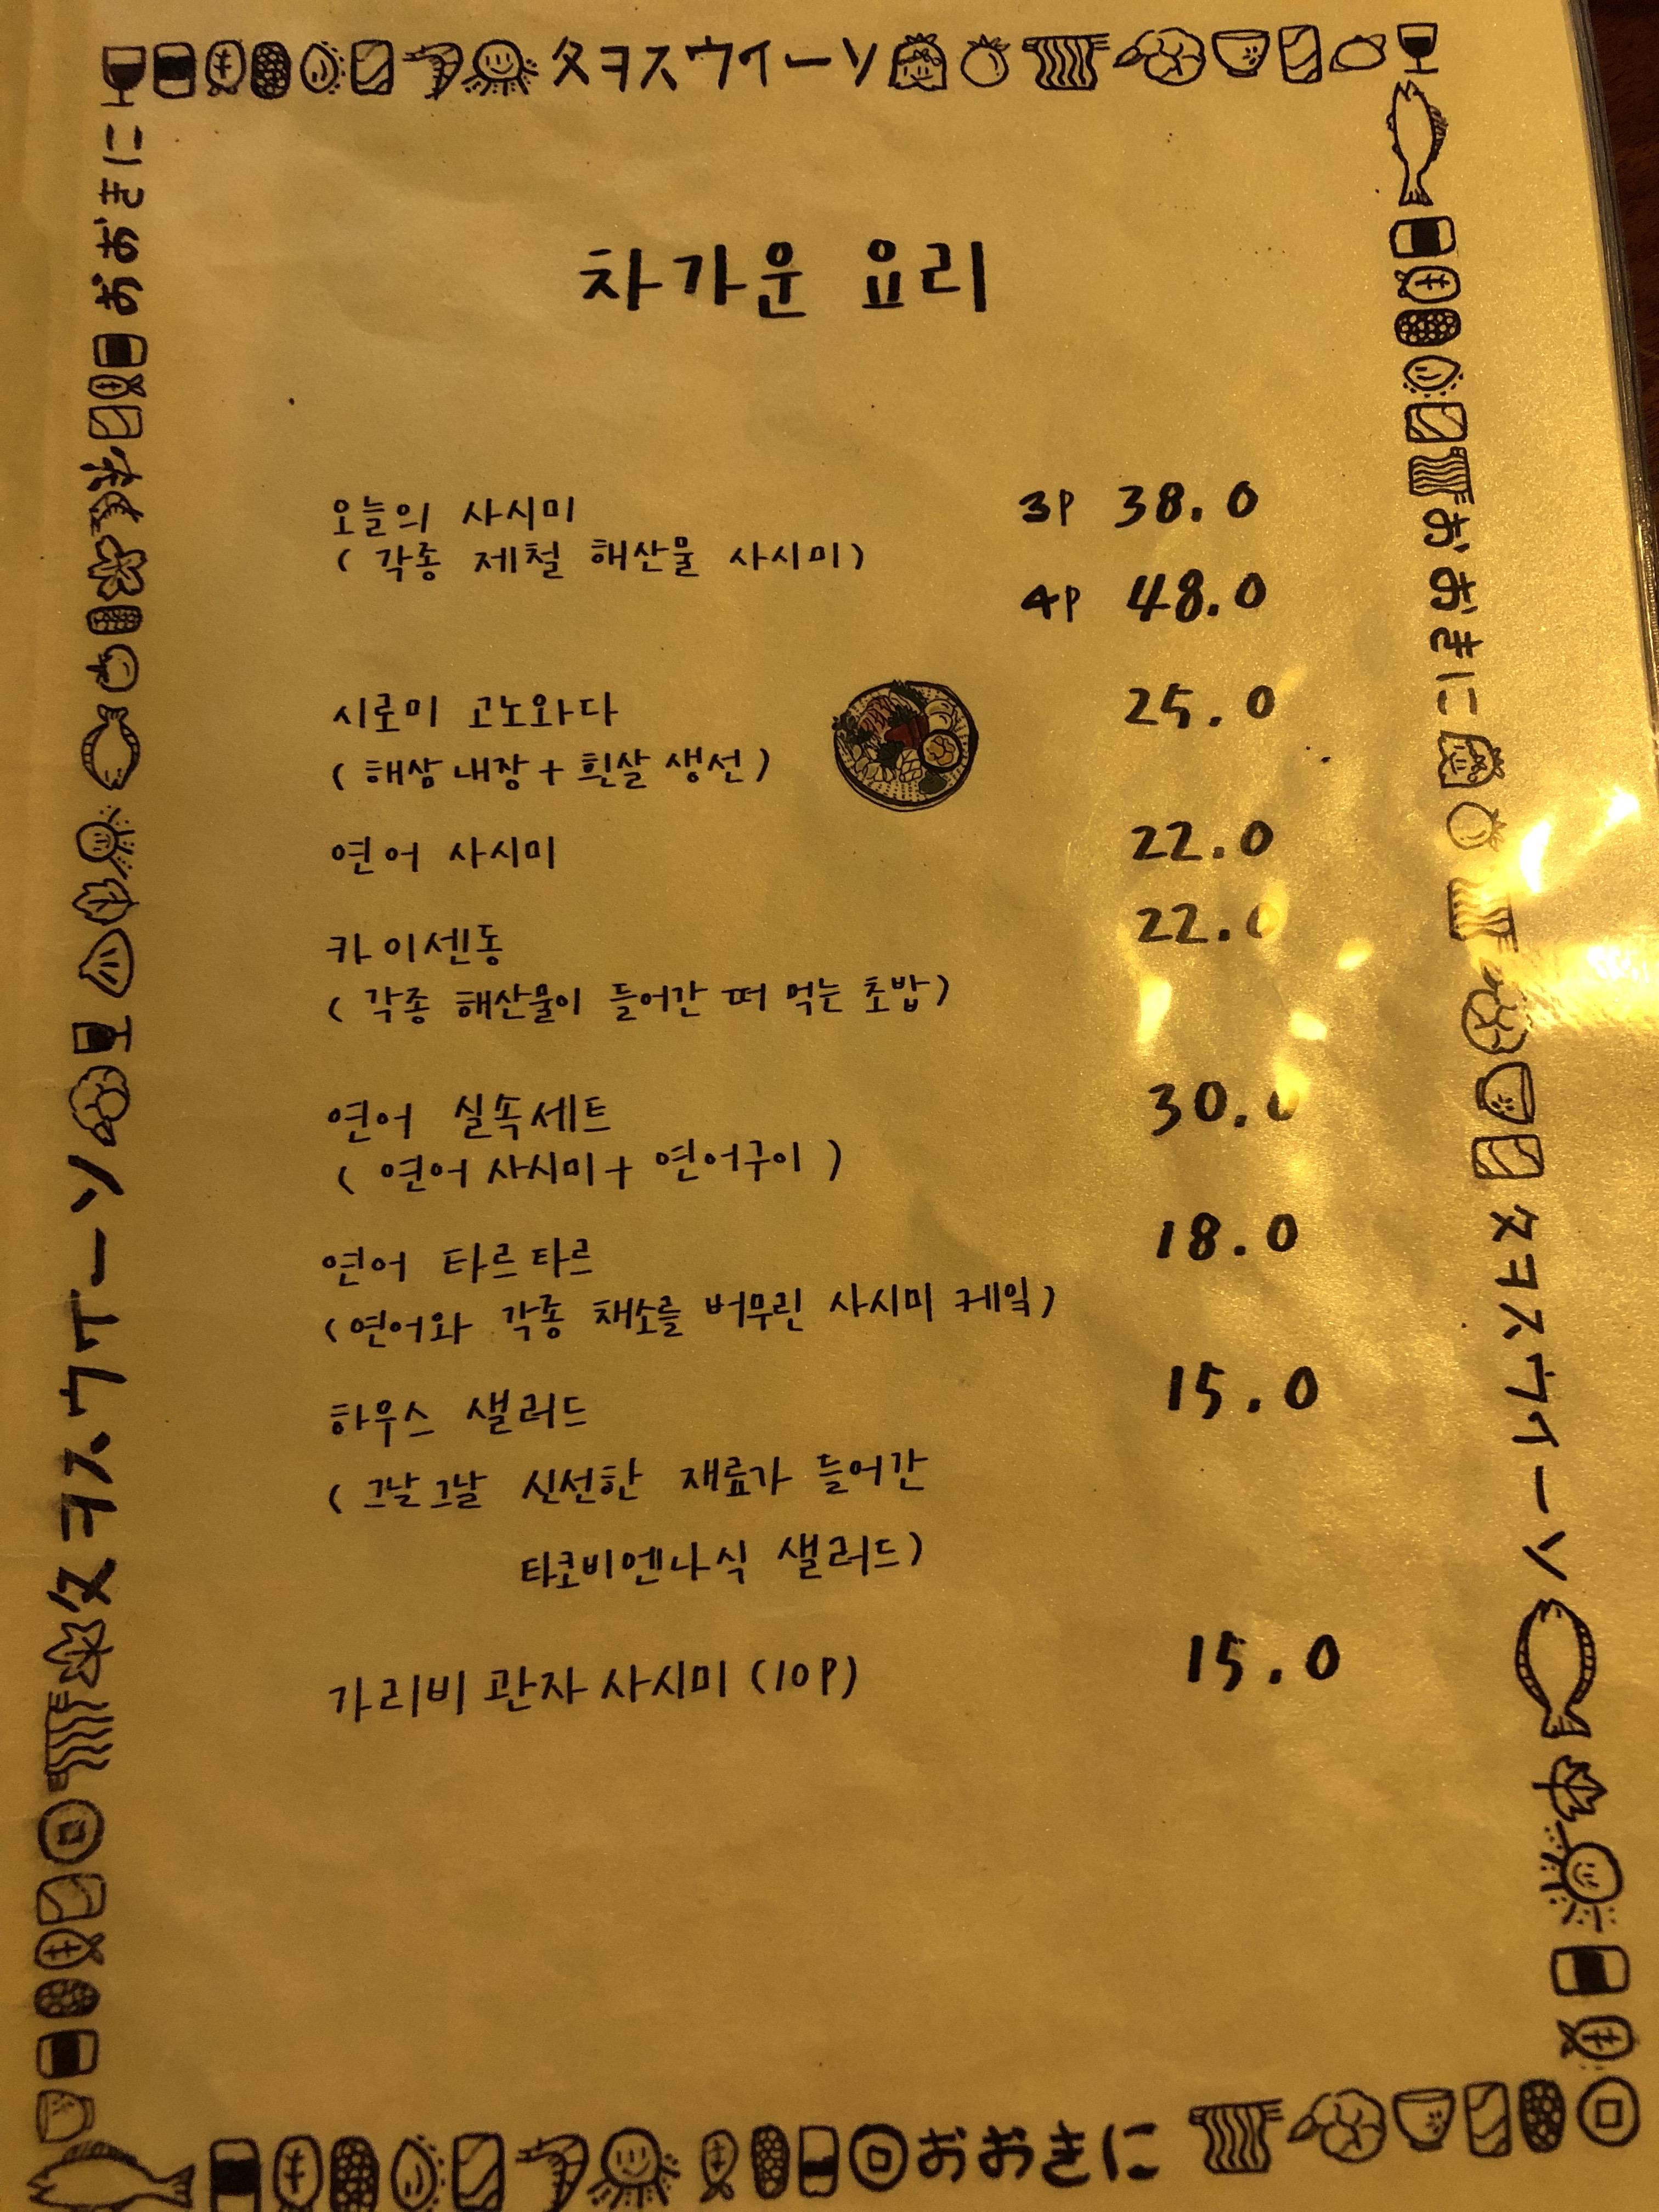 タヲスウイーソ
おおきに
차가운 요리
오늘의 사시미 3P 38.0
( 각종 제철 해산물 사시미)
4P 48.0
시로미 고노와다 25.0
( 해삼내장 + 흰살 생선 )
연어 사시미 22.0
카이센동 22.0
( 각종 해산물이 들어간 떠 먹는 초밥)
연어 실속세트 30.0
( 연어 사시미 + 연어구이 )
연어 타르타르 18.0
(연어와 각종 채소를 버무린 사시미 케잌)
하우스 샐러드 15.0
( 그날그날 신선한 재료가 들어간
타코비엔나식 샐러드)
가리비 관자 사시미 (10P) 15.0
タヲスウイーソ
おおきに
タヲスウイーソ
おおきに